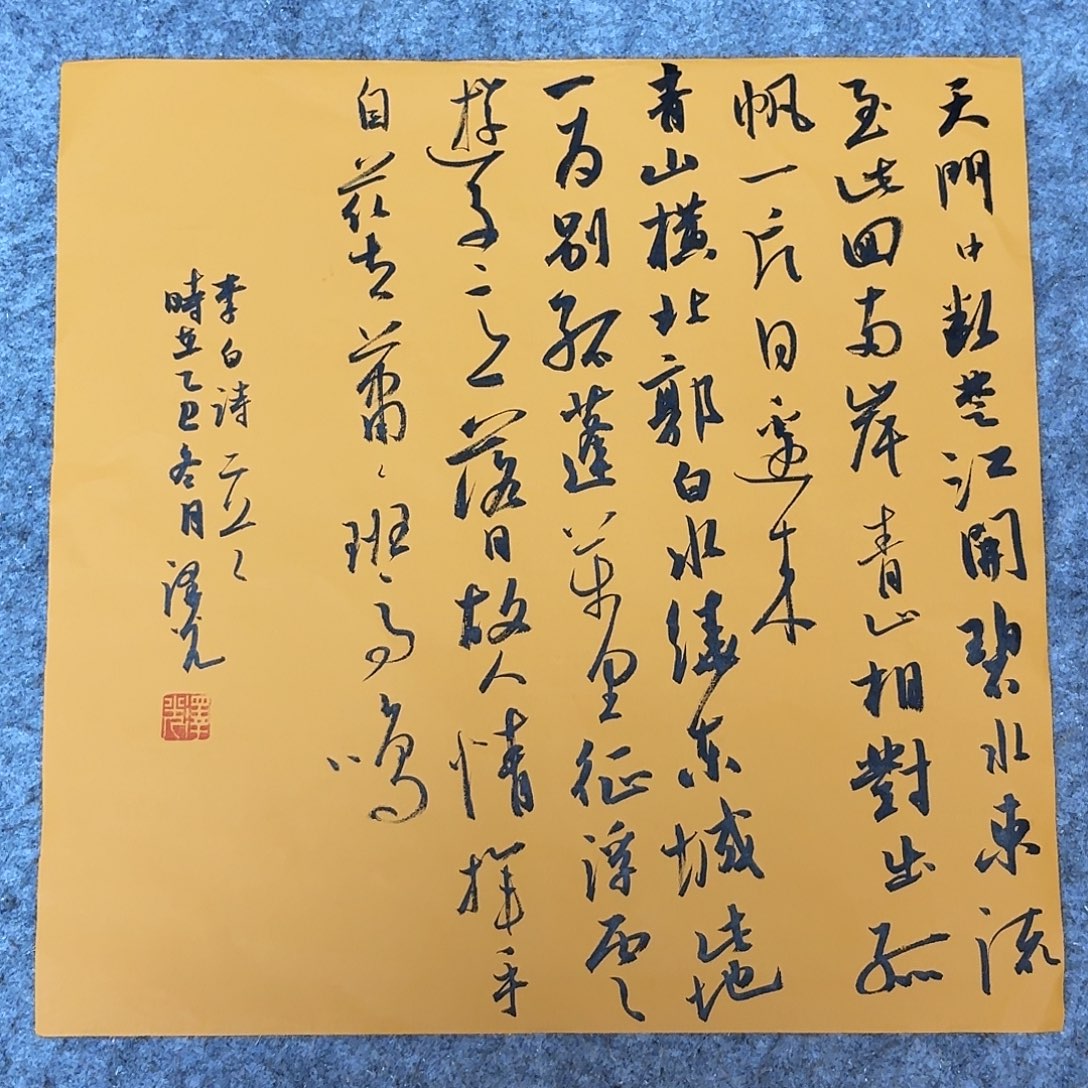 天門中斷楚江開碧水東流
至此回兩岸青山相對出孤
帆一片日邊來
青山橫北郭白水繞東城此地
一為別孤蓬萬里征浮雲
遊子意落日故人情揮手
自茲去蕭々班馬鳴
李白詩二首
時在乙巳冬月澤光
澤光